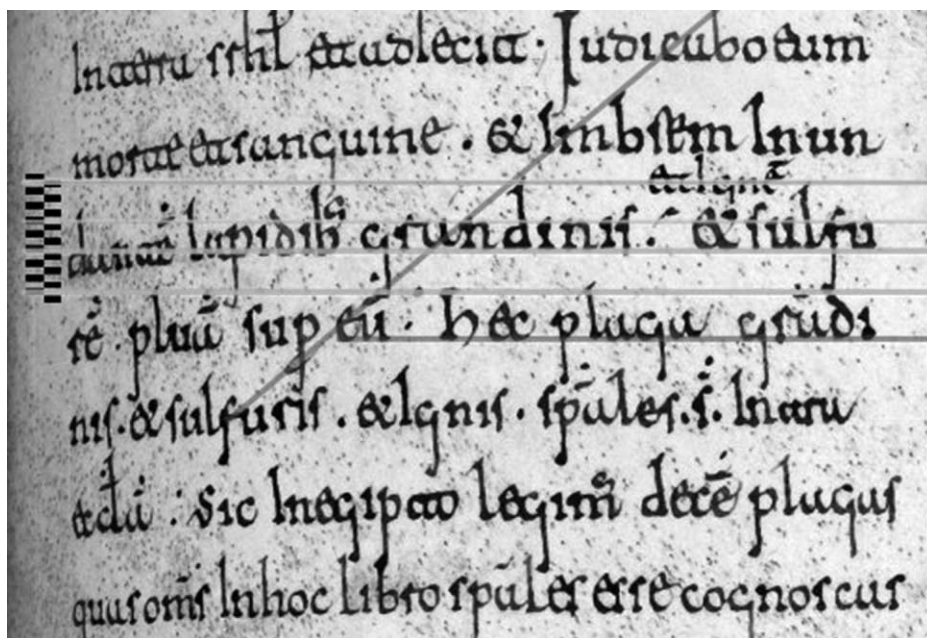 Interra srhl̄ et adiecit · Iudicabo eum
morte et sanguine . & imbrem Inun
dantē lapidibꝰ grandinis . & sulfu
et ignē
rē . pluā sup eū . hec plaga grādi
nis . & sulfuris . & Ignis . spāles . s̄ . Intra
eclā : Sic Inegipto legimꝰ decē plagas
quas om̄s Inhoc libro spāles esse cognoscas